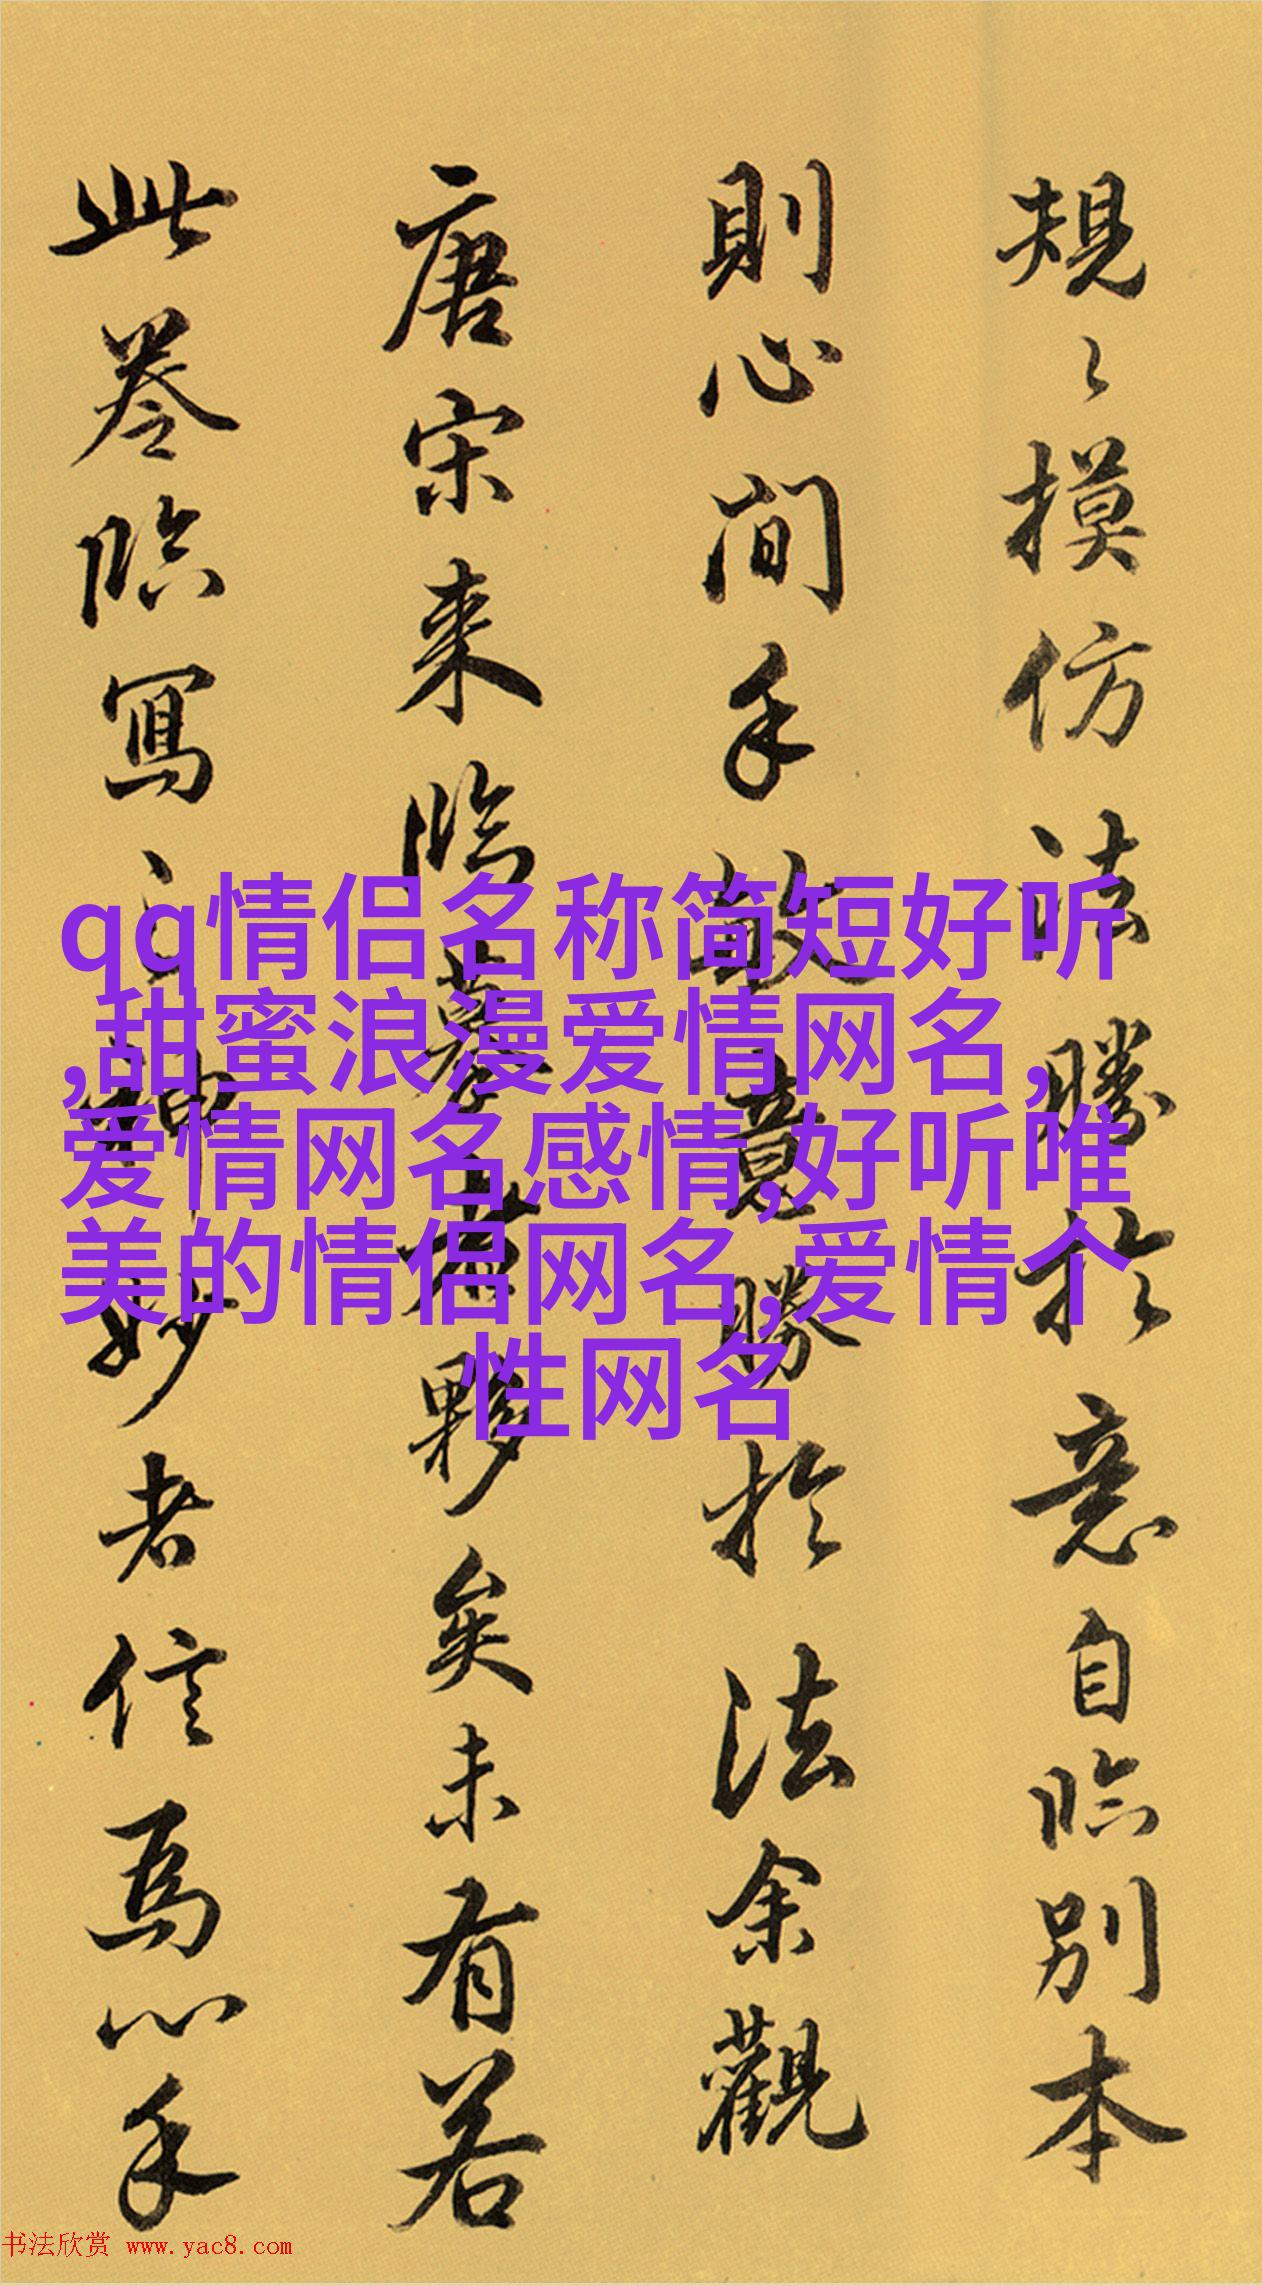 規〻摸仿法勝於意自臨別本
則心間手敏意勝於法余觀
唐宋來臨摹者夥矣未有若
此卷臨寫之神妙者信為心手
qq情侣名称简短好听
,甜蜜浪漫爱情网名,
爱情网名感情,好听唯
美的情侣网名,爱情个
性网名
书法欣赏 www.yac8.com